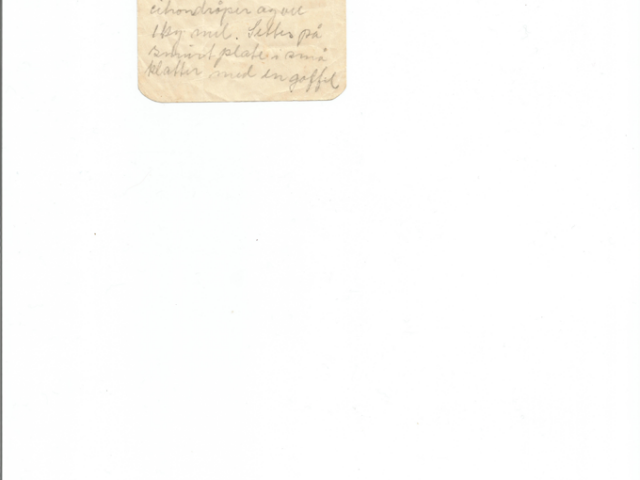 citrondråper og vel
1 kg mel. Settes på
smurt plate i små
klatter med en gaffel